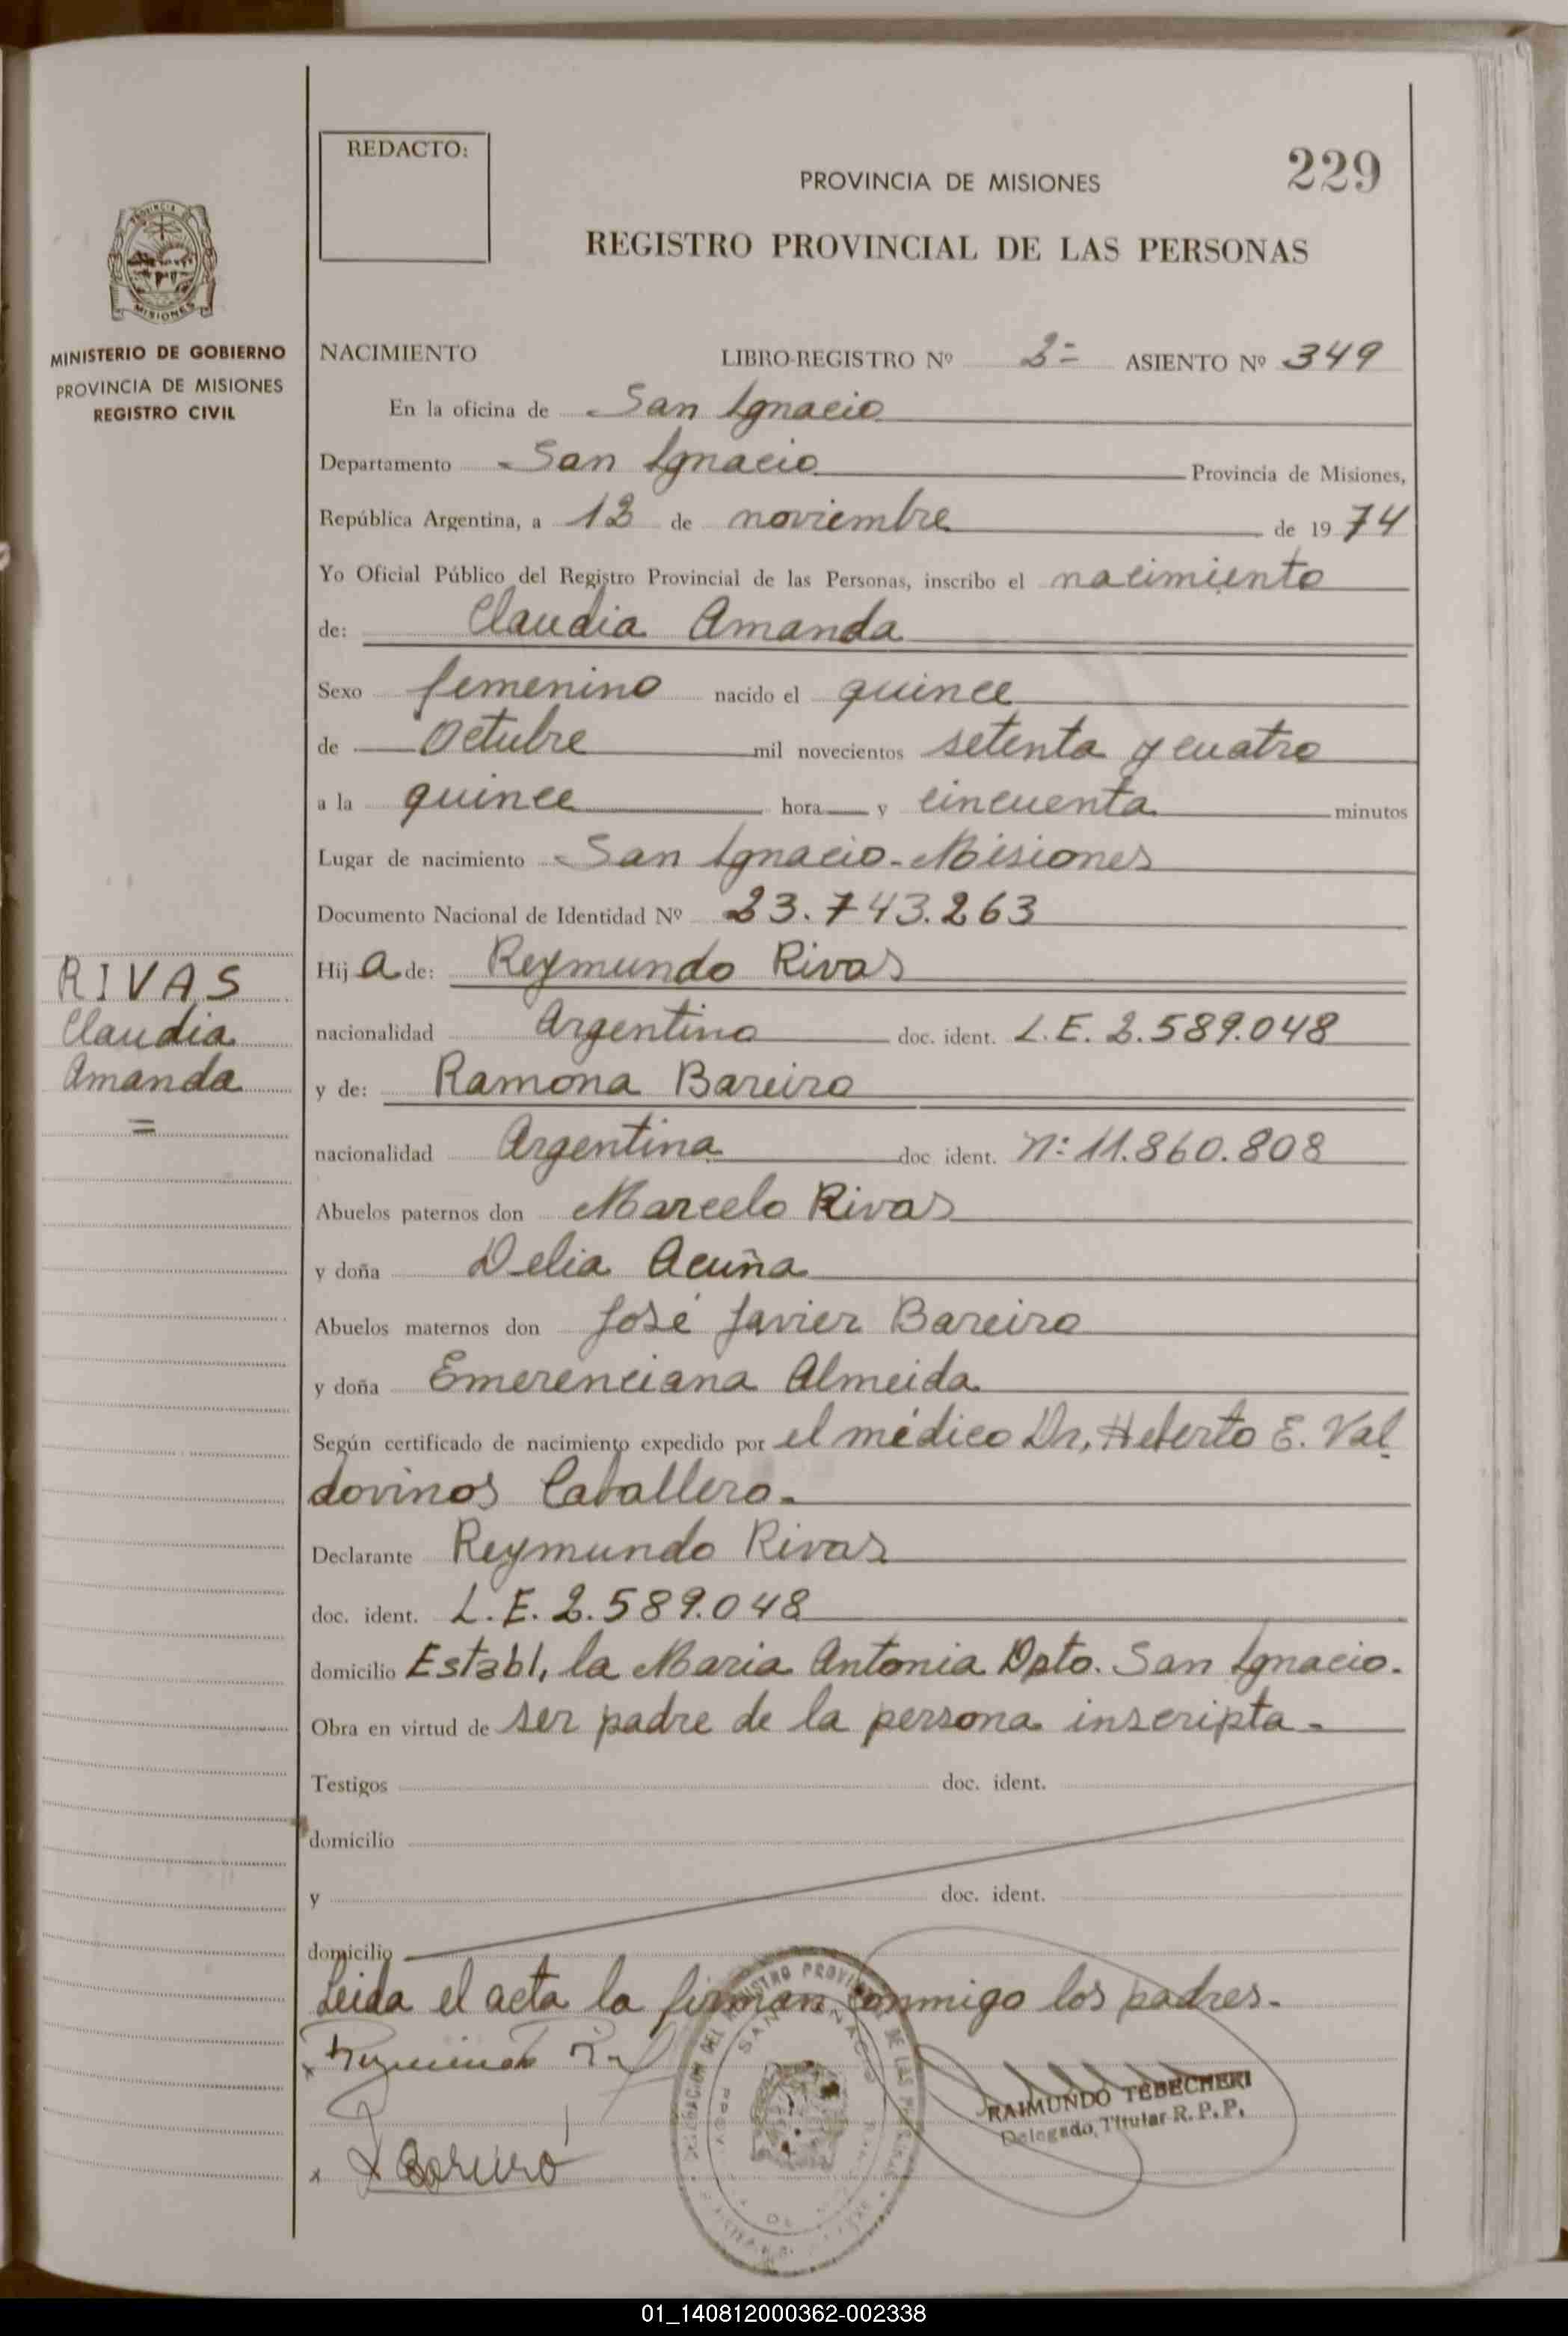 REDACTO:
PROVINCIA DE MISIONES
229
REGISTRO PROVINCIAL DE LAS PERSONAS
MISIONES
MINISTERIO DE GOBIERNO
PROVINCIA DE MISIONES
REGISTRO CIVIL
NACIMIENTO LIBRO-REGISTRO Nº 2= ASIENTO Nº 349
En la oficina de San Ignacio
Departamento San Ignacio Provincia de Misiones,
República Argentina, a 12 de noviembre de 1974
Yo Oficial Público del Registro Provincial de las Personas, inscribo el nacimiento
de: Claudia Amanda
Sexo femenino nacido el quince
de Octubre mil novecientos setenta y cuatro
a la quince hora y cincuenta minutos
Lugar de nacimiento San Ignacio - Misiones
Documento Nacional de Identidad Nº 23.743.263
RIVAS
Claudia
Amanda
=
Hija de: Reymundo Rivas
nacionalidad Argentino doc. ident. L.E. 2.589.048
y de: Ramona Bareiro
nacionalidad Argentina doc ident. n: 11.860.808
Abuelos paternos don Marcelo Rivas
y doña Delia Acuña
Abuelos maternos don José Javier Bareiro
y doña Emerenciana Almeida
Según certificado de nacimiento expedido por el médico Dr, Heberto E. Val
dovinos Caballero.
Declarante Reymundo Rivas
doc. ident. L.E. 2.589.048
domicilio Establ, la Maria Antonia Dpto. San Ignacio.
Obra en virtud de ser padre de la persona inscripta.
Testigos doc. ident.
domicilio
y doc. ident.
domicilio
Leida el acta la firman conmigo los padres.
RAIMUNDO TEBECHERI
Delegado Titular R. P. P.
Bareiro
01_140812000362-002338